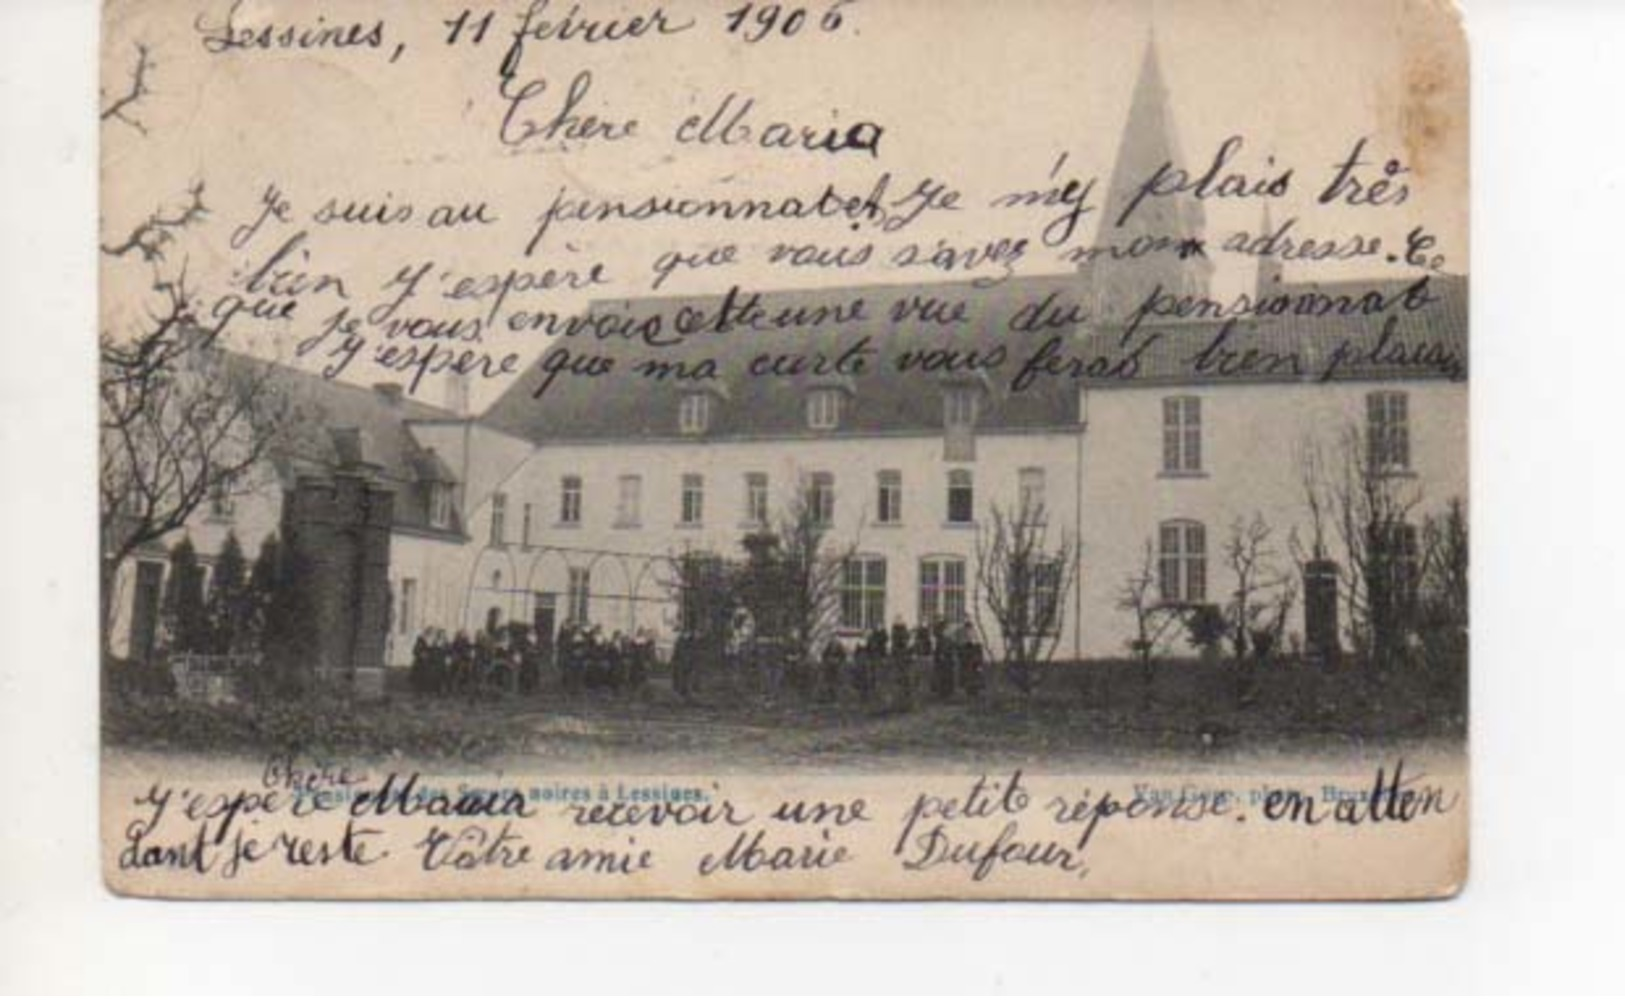 Lessines, 11 février 1906.
Chère Maria
Je suis au pensionnat et Je m'y plais très
bien J'espère que vous savez mon adresse. Ce
que je vous envois cette une vue du pensionnat
J'espère que ma carte vous feras bien plaisir
Chère
J'espère Maria recevoir une petit réponse. en atten
dant je reste Vôtre amie Marie Dufour,
Pensionnat des Sœurs noires à Lessines.